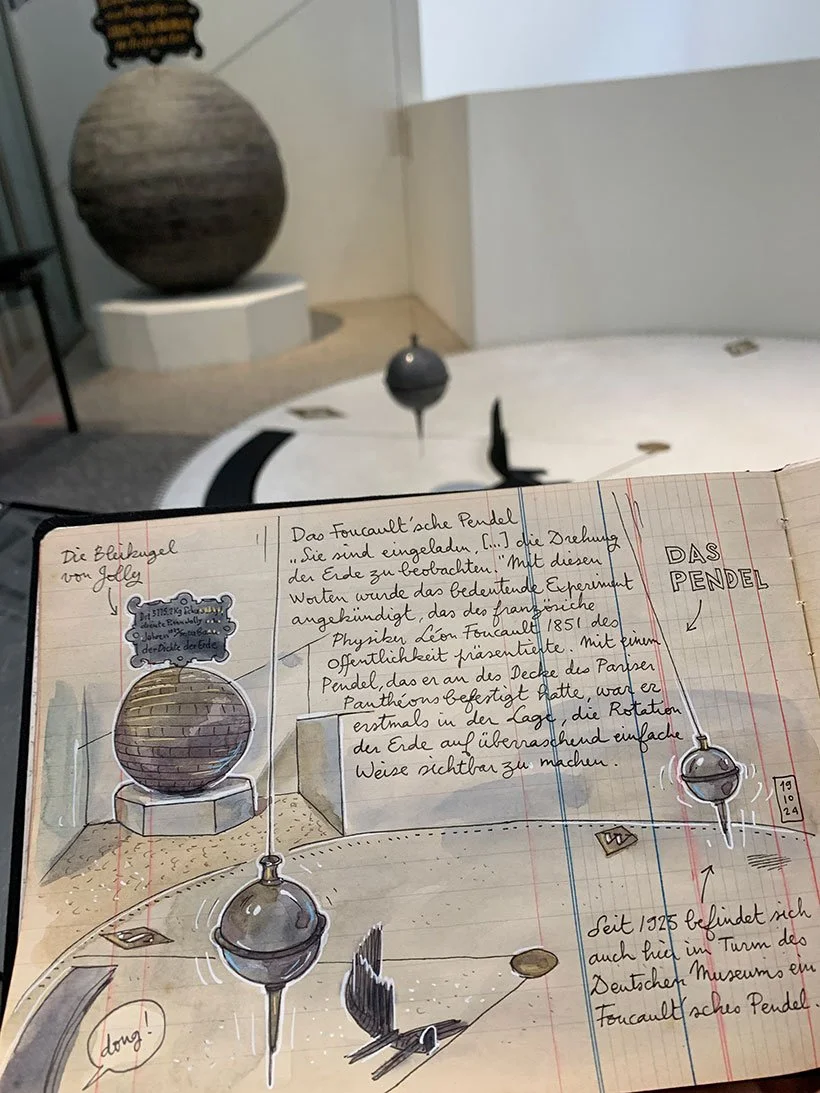 Die Bleikugel
von Jolly
der Dichte der Erde
Das Foucault'sche Pendel
„Sie sind eingeladen, [...] die Drehung
der Erde zu beobachten." Mit diesen
Worten wurde das bedeutende Experiment
angekündigt, das der französiche
Physiker Léon Foucault 1851 der
Öffentlichkeit präsentierte. Mit einem
Pendel, das er an der Decke des Pariser
Panthéons befestigt hatte, war er
erstmals in der Lage, die Rotation
der Erde auf überraschend einfache
Weise sichtbar zu machen.
DAS
PENDEL
19
10
24
Seit 1925 befindet sich
auch hier im Turm des
Deutschen Museums ein
Foucault'sches Pendel.
dong!